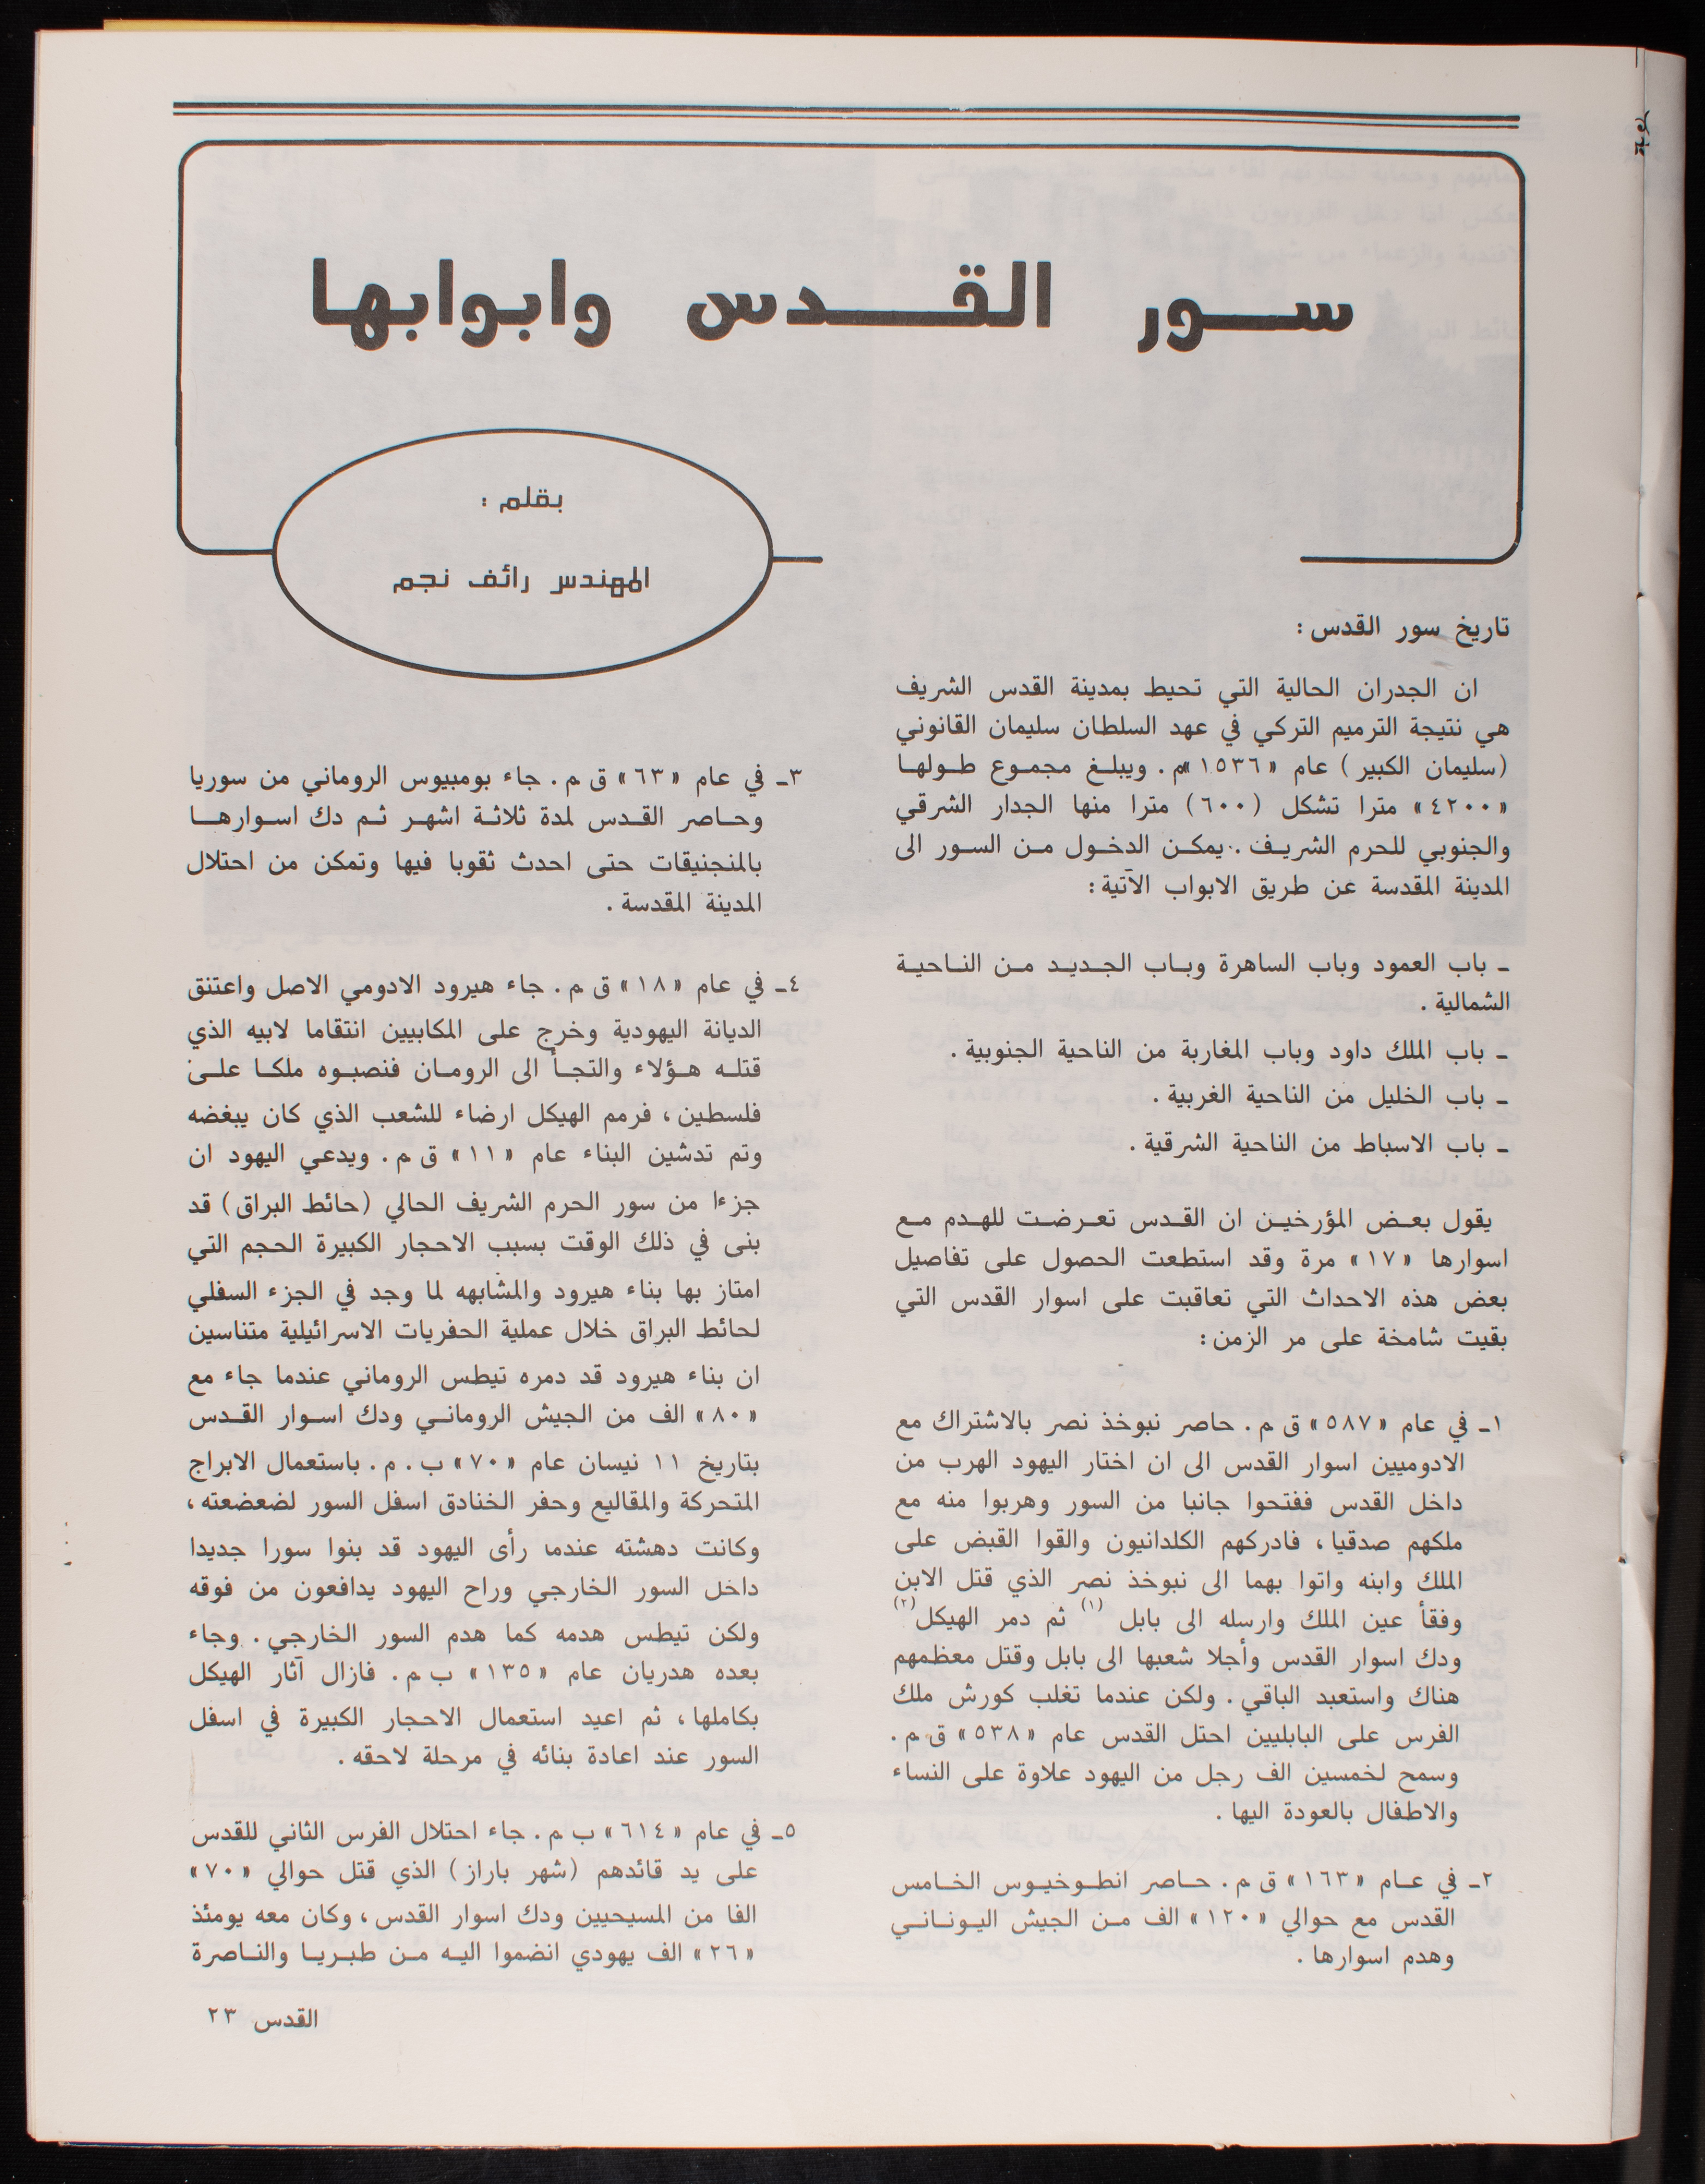 سور القدس وابوابها
بقلم :
المهندس رائف نجم
تاريخ سور القدس :
ان الجدران الحالية التي تحيط بمدينة القدس الشريف
هي نتيجة الترميم التركي في عهد السلطان سليمان القانوني
(سليمان الكبير) عام «١٥٣٦»م. ويبلغ مجموع طولها
«٤٢٠٠» مترا تشكل (٦٠٠) مترا منها الجدار الشرقي
والجنوبي للحرم الشريف. يمكن الدخول من السور الى
المدينة المقدسة عن طريق الابواب الآتية :
ـ باب العمود وباب الساهرة وباب الجديد من الناحية
الشمالية .
ـ باب الملك داود وباب المغاربة من الناحية الجنوبية .
ـ باب الخليل من الناحية الغربية .
ـ باب الاسباط من الناحية الشرقية .
يقول بعض المؤرخين ان القدس تعرضت للهدم مع
اسوارها «١٧» مرة وقد استطعت الحصول على تفاصيل
بعض هذه الاحداث التي تعاقبت على اسوار القدس التي
بقيت شامخة على مر الزمن :
١ـ في عام «٥٨٧» ق م. حاصر نبوخذ نصر بالاشتراك مع
الادوميين اسوار القدس الى ان اختار اليهود الهرب من
داخل القدس ففتحوا جانبا من السور وهربوا منه مع
ملكهم صدقيا، فادركهم الكلدانيون والقوا القبض على
الملك وابنه واتوا بهما الى نبوخذ نصر الذي قتل الابن
وفقأ عين الملك وارسله الى بابل (١) ثم دمر الهيكل (٢)
ودك اسوار القدس وأجلا شعبها الى بابل وقتل معظمهم
هناك واستعبد الباقي. ولكن عندما تغلب كورش ملك
الفرس على البابليين احتل القدس عام «٥٣٨» ق م.
وسمح لخمسين الف رجل من اليهود علاوة على النساء
والاطفال بالعودة اليها .
٢ـ في عام «١٦٣» ق م. حاصر انطوخيوس الخامس
القدس مع حوالي «١٢٠» الف من الجيش اليوناني
وهدم اسوارها .
٣ـ في عام «٦٣» ق م. جاء بومبيوس الروماني من سوريا
وحاصر القدس لمدة ثلاثة اشهر ثم دك اسوارها
بالمنجنيقات حتى احدث ثقوبا فيها وتمكن من احتلال
المدينة المقدسة .
٤ـ في عام «١٨» ق م. جاء هيرود الادومي الاصل واعتنق
الديانة اليهودية وخرج على المكابيين انتقاما لابيه الذي
قتله هؤلاء والتجأ الى الرومان فنصبوه ملكا على
فلسطين، فرمم الهيكل ارضاء للشعب الذي كان يبغضه
وتم تدشين البناء عام «١١» ق م. ويدعي اليهود ان
جزءا من سور الحرم الشريف الحالي (حائط البراق) قد
بنى في ذلك الوقت بسبب الاحجار الكبيرة الحجم التي
امتاز بها بناء هيرود والمشابهه لما وجد في الجزء السفلي
لحائط البراق خلال عملية الحفريات الاسرائيلية متناسين
ان بناء هيرود قد دمره تيطس الروماني عندما جاء مع
«٨٠» الف من الجيش الروماني ودك اسوار القدس
بتاريخ ١١ نيسان عام «٧٠» ب. م. باستعمال الابراج
المتحركة والمقاليع وحفر الخنادق اسفل السور لضعضعته،
وكانت دهشته عندما رأى اليهود قد بنوا سورا جديدا
داخل السور الخارجي وراح اليهود يدافعون من فوقه
ولكن تيطس هدمه كما هدم السور الخارجي. وجاء
بعده هدريان عام «١٣٥» ب م. فازال آثار الهيكل
بكاملها، ثم اعيد استعمال الاحجار الكبيرة في اسفل
السور عند اعادة بنائه في مرحلة لاحقه .
٥ـ في عام «٦١٤» ب م. جاء احتلال الفرس الثاني للقدس
على يد قائدهم (شهر باراز) الذي قتل حوالي «٧٠»
الفا من المسيحيين ودك اسوار القدس، وكان معه يومئذ
«٢٦» الف يهودي انضموا اليه من طبريا والناصرة
القدس ٢٣